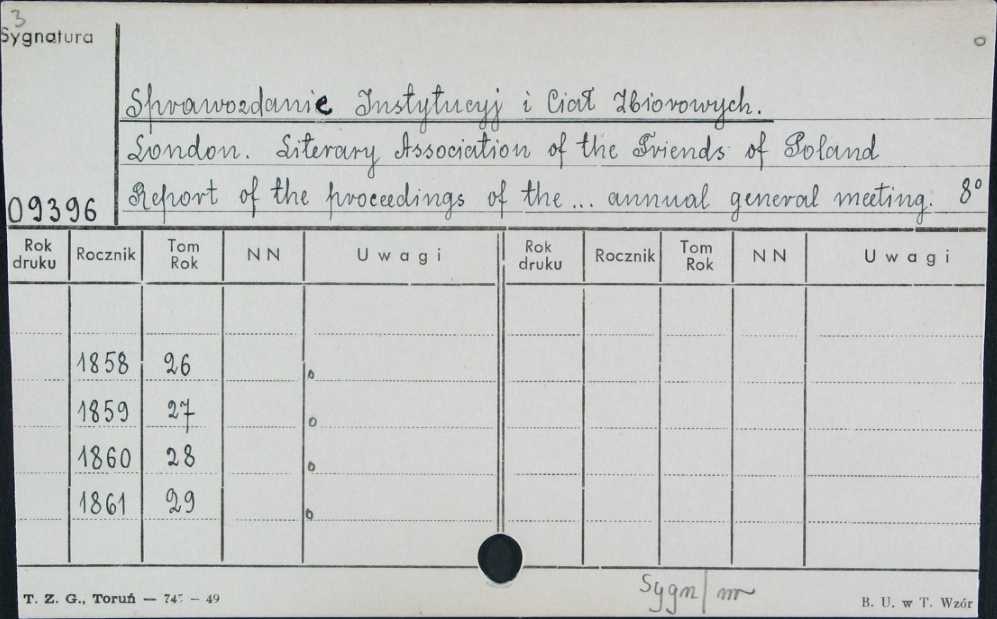 3
Sygnatura
o
Sprawozdanie Instytucyj i Ciał Zbiorowych.
London. Literary Association of the Friends of Poland
Report of the proceedings of the ... annual general meeting. 8°
09396
Rok druku Rocznik Tom Rok NN Uwagi Rok druku Rocznik Tom Rok NN Uwagi
1858 26 o
1859 27 o
1860 28 o
1861 29 o
Sygn/
T. Z. G., Toruń — 745 — 49
B. U. w T. Wzór